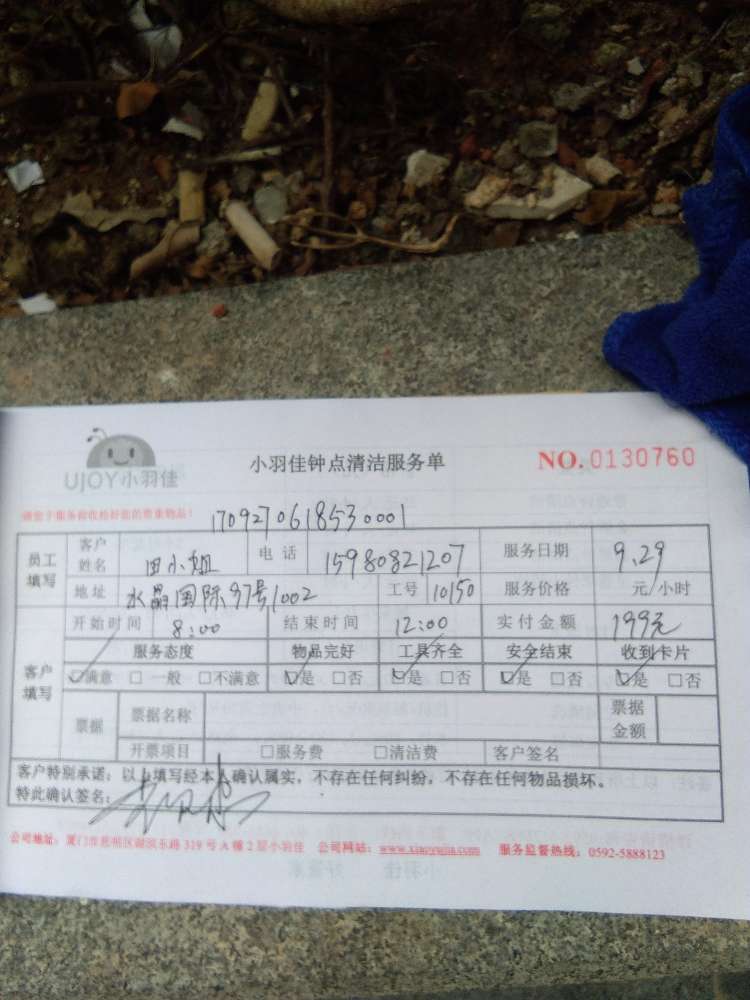 UJOY小羽佳
小羽佳钟点清洁服务单
NO.0130760
1709270618530001
员工填写 客户姓名 田小姐 电话 15980821207 服务日期 9.29
地址 水晶国际37号1002 工号 10150 服务价格 元/小时
客户填写 开始时间 8:00 结束时间 12:00 实付金额 199元
服务态度 物品完好 工具齐全 安全结束 收到卡片
☑满意 □一般 □不满意 ☑是 □否 ☑是 □否 ☑是 □否 ☑是 □否
票据 票据名称 票据金额
开票项目 □服务费 □清洁费 客户签名
客户特别承诺：以上填写经本人确认属实，不存在任何纠纷，不存在任何物品损坏。
特此确认签名：
公司地址：厦门市思明区湖滨东路319号A幢2层小羽佳 公司网站：www.xiaoyujia.com 服务监督热线：0592-5888123